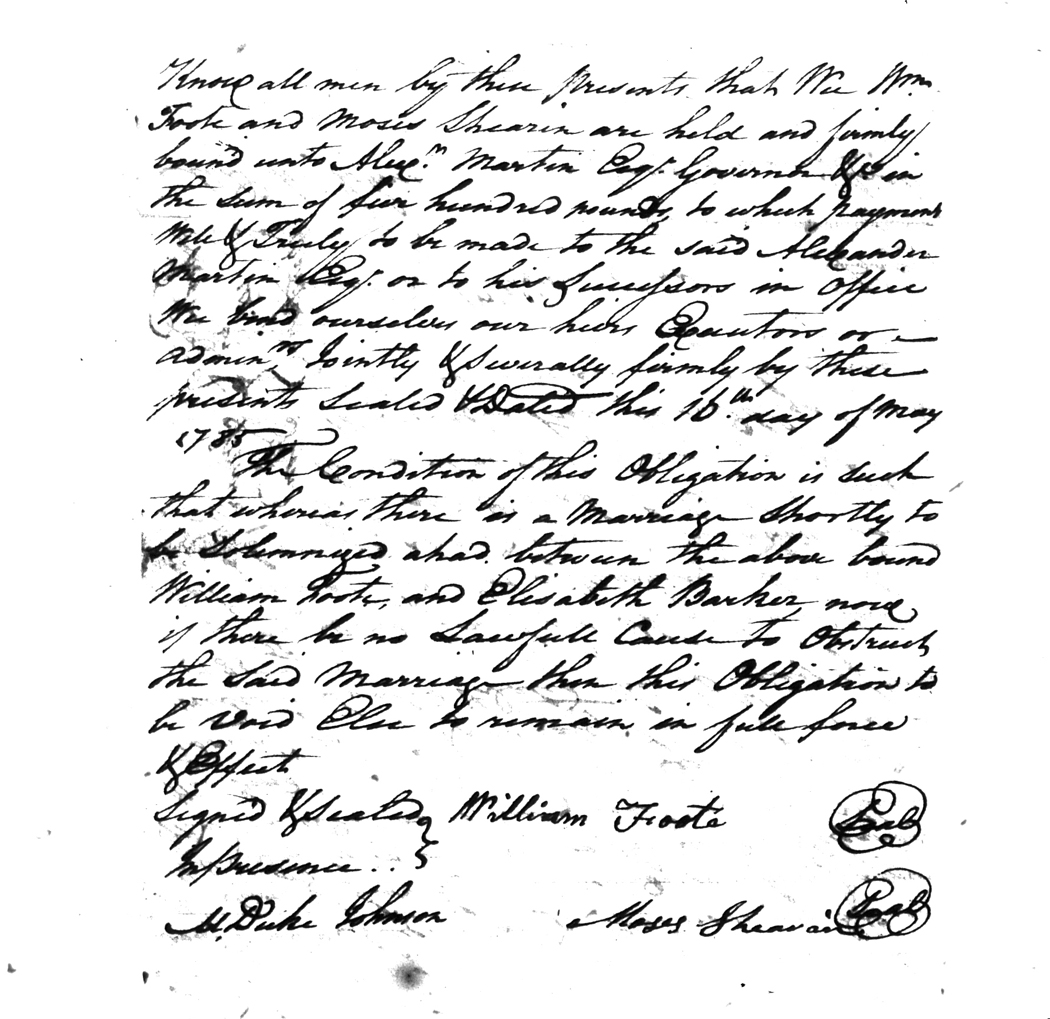 Know all men by these presents that We Wm
Foote and Moses Shearin are held and firmly
bound unto Alexr. Martin Esqr. Governor &c in
the sum of five hundred pounds, to which payment
Well & Truly to be made to the said Alexander
Martin Esqr. or to his Successors in Office
We bind ourselves our heirs Executors or
Adminrs Jointly & Severally firmly by these
presents Sealed & Dated this 16th day of May
1785
The Condition of this Obligation is Such
that whereas there is a Marriage Shortly to
be Solemnized ahad between the above bound
William Foote, and Elisabeth Barker, now
if there be no Lawfull Cause to Obstruct
the Said Marriage then this Obligation to
be Void Else to remain in full force
& Effect
Signed & Sealed William Foote Seal
In presence ..
M. Duke Johnson Moses Shearin Seal